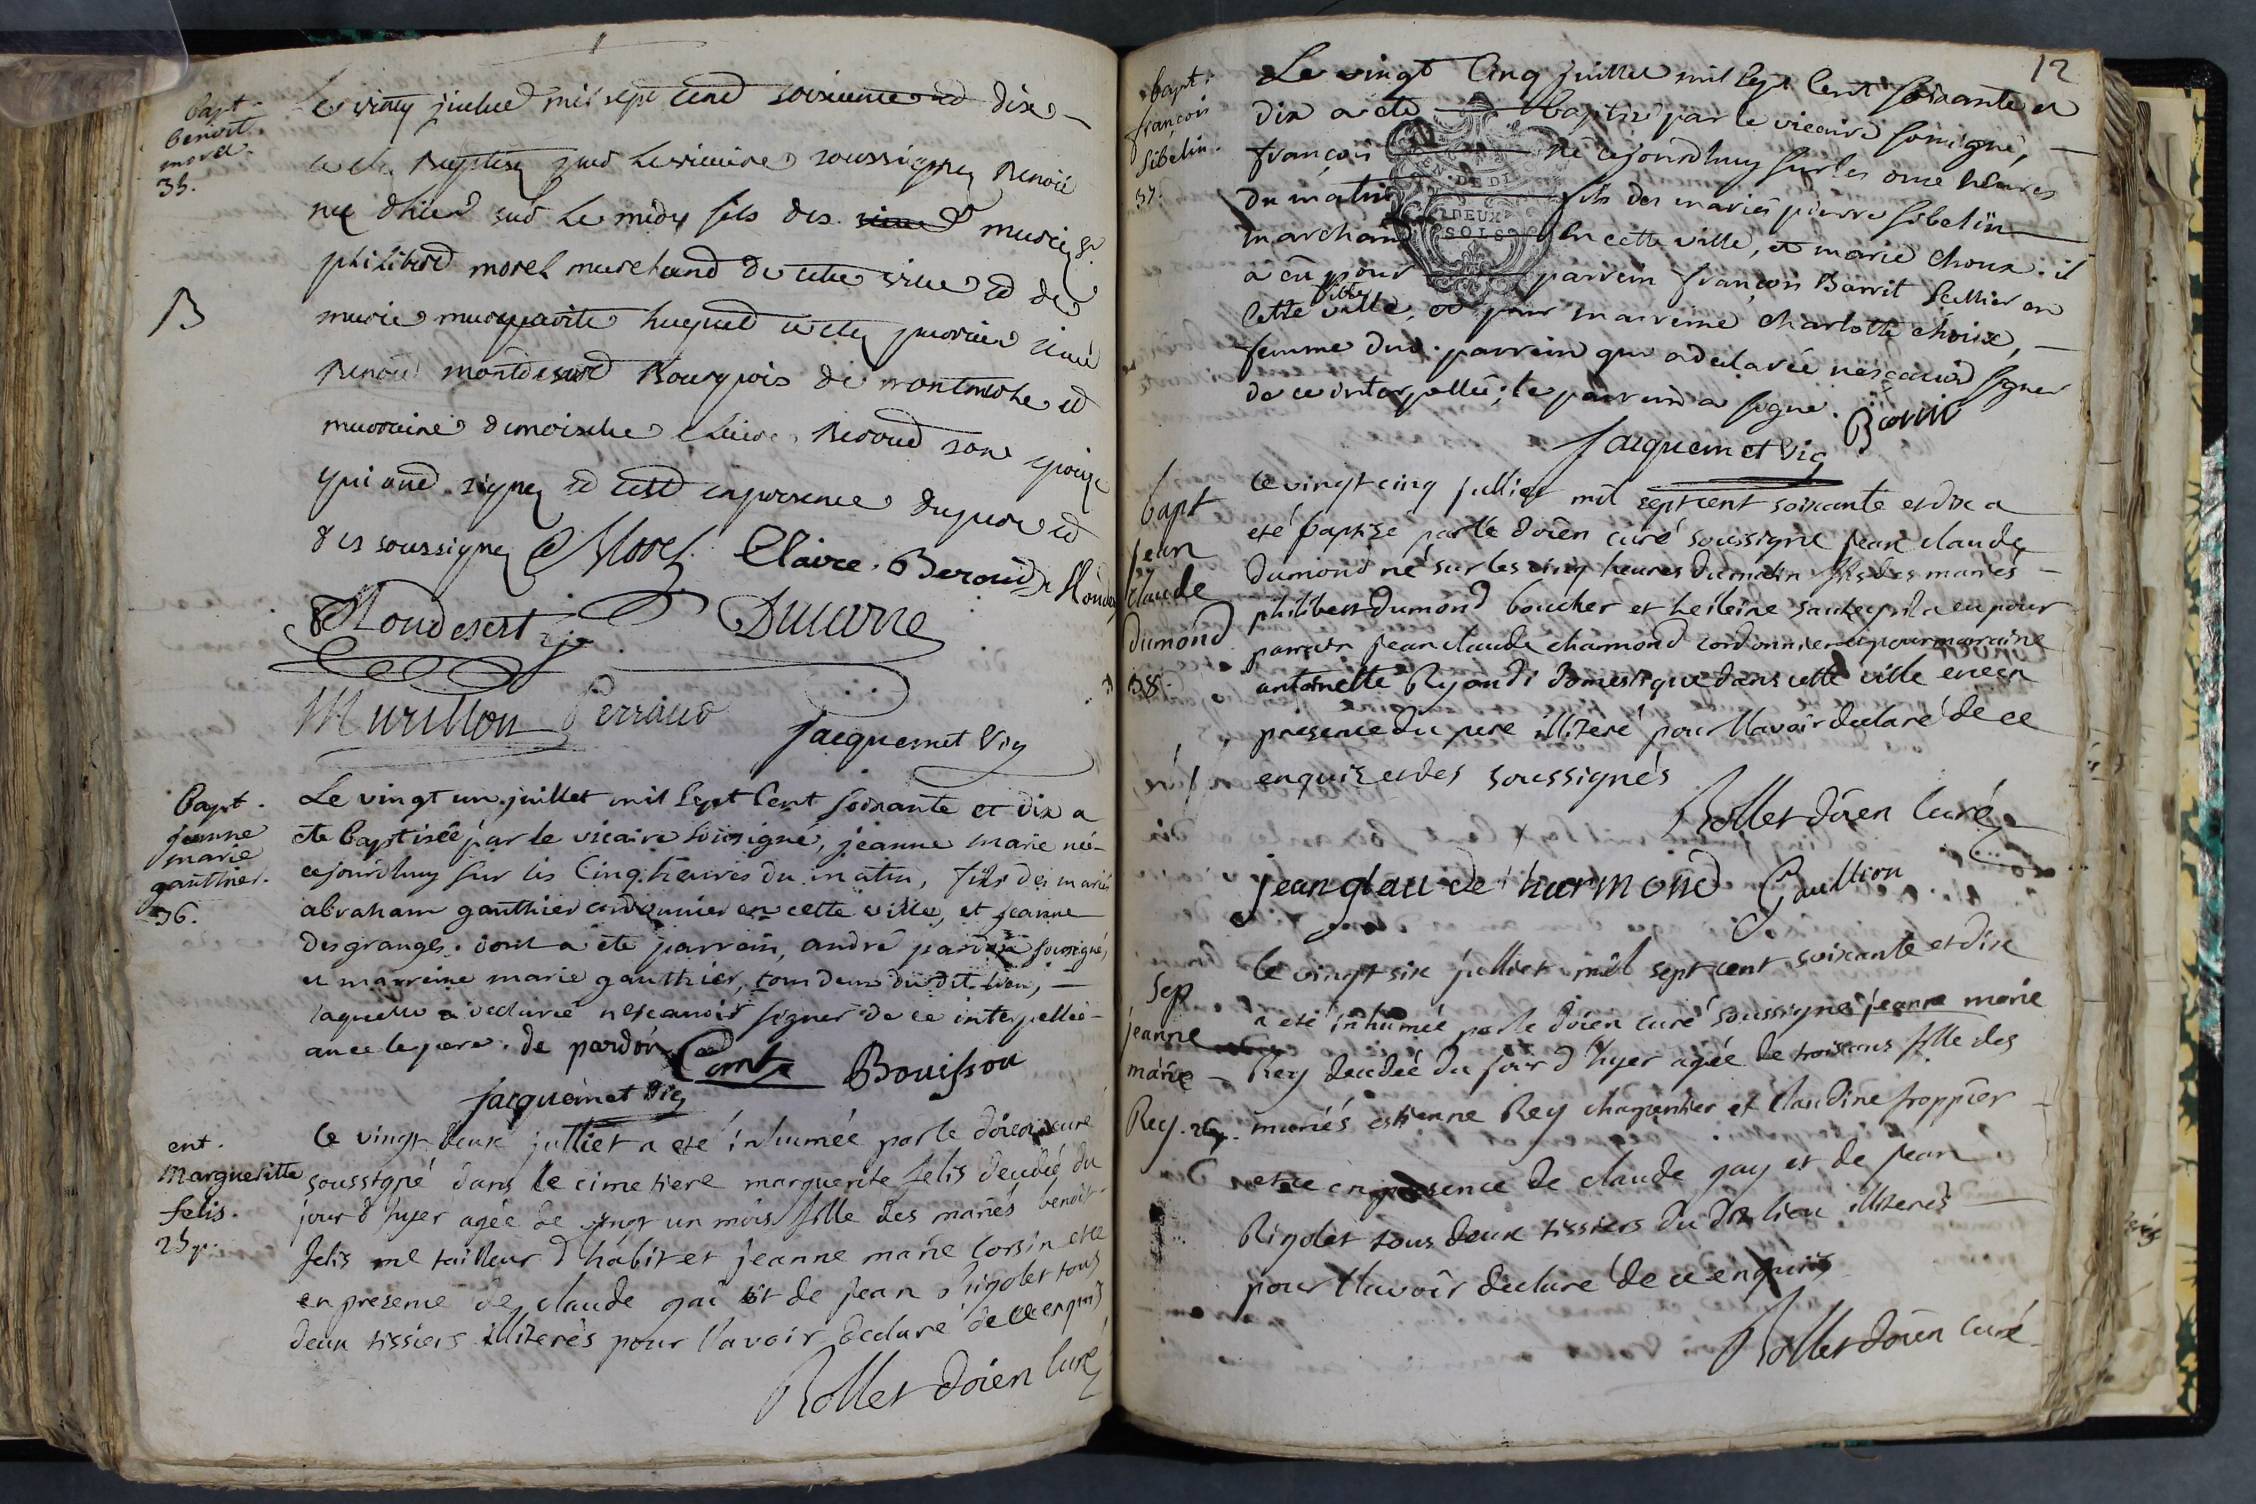 bapt.
benoit
morel.
35.
Le vingt juillet mil sept cent soixante et dix
a ete Baptisez par le vicaire soussignez Benoit
né d'hier sur le midy fils des mariez Sr
philibert morel marchand de cette ville et de
marie margueritte huguet a ete parrain
Benoit montdesert Bourgeois de et
marraine demoiselle Claire Beroud son epouse
qui ont signez et cest en presence du pere et
des soussignez Morel Claire Beroud
Mondesert Ducarre
Murillon Perraud
Jacquemet vic
B
bapt.
jeanne
marie
gauthier.
36.
Le vingt un juillet mil sept cent soixante et dix a
ete baptisée par le vicaire soussigné, jeanne marie née
cejourdhuy sur les cinq heures du matin, fille des mariés
abraham gauthier cordonnier en cette ville, et jeanne
desgranges. dont a ete parrain, andré pardon soussigné,
et marreine marie gauthier, tous deux dudit lieu,
laquelle a declaré nescavoir signer de ce interpellée
avec le pere. de pardon Comte Bouisson
Jacquemet vic
ent.
Margueritte
felis.
25
Le vingt deux julliet a eté inhumée par le doien curé
soussigné dans le cimetiere marguerite felis decedée du
jour d'hyer agée de vingt un mois fille des mariés benoit
felis me tailleur d'habit et jeanne marie corsin et ce
en presence de claude gai et de jean Rigolet tous
deux tissiers illiterés pour l'avoir declaré de ce enquis
Rollet doien curé
12
bapt.
francois
sibelin.
37.
Le vingt cinq juillet mil sept cent soixante et
dix a ete baptisé par le vicaire soussigné,
francois né cejourdhuy sur les onze heures
du matin fils des mariés pierre sibelin
marchand en cette ville, et marie choux. il
a eu pour parrein françois Barrit sellier en
cette ditte ville, et pour marreine charlotte choux,
femme dud. parrein qui a declarée nescavoir signer
de ce interpellée; le parrein a signé. Barrit
Jacquemet vic
GEN. DE DI
DEUX
SOLS
bapt
jean
claude
dumond
38.
Le vingt cinq julliet mil sept cent soixante et dix a
eté baptizé par le doien curé soussigné jean claude
dumond né sur les cinq heures du matin fils des mariés
philibert dumond boucher et heileine il a eu pour
parrain jean claude chamond cordonnier et pour maraine
antoinette domestique dans cette ville et ce en
presence du pere illiteré pour l'avoir declaré de ce
enquis et des soussignés
Rollet doien curé
jean glaude harmond Gaullion
Sep
jeanne
marie
Rey. 26.
Le vingt six julliet mil sept cent soixante et dix
a eté inhumée par le doien curé soussigné jeanne marie
Rey decedée du jour d'hyer agée de trois ans fille des
mariés estienne Rey charpentier et claudine froppier
et ce en presence de claude gay et de jean
Rigolet tous deux tissiers du dit lieu illiterés
pour l'avoir declaré de ce enquis
Rollet doien curé